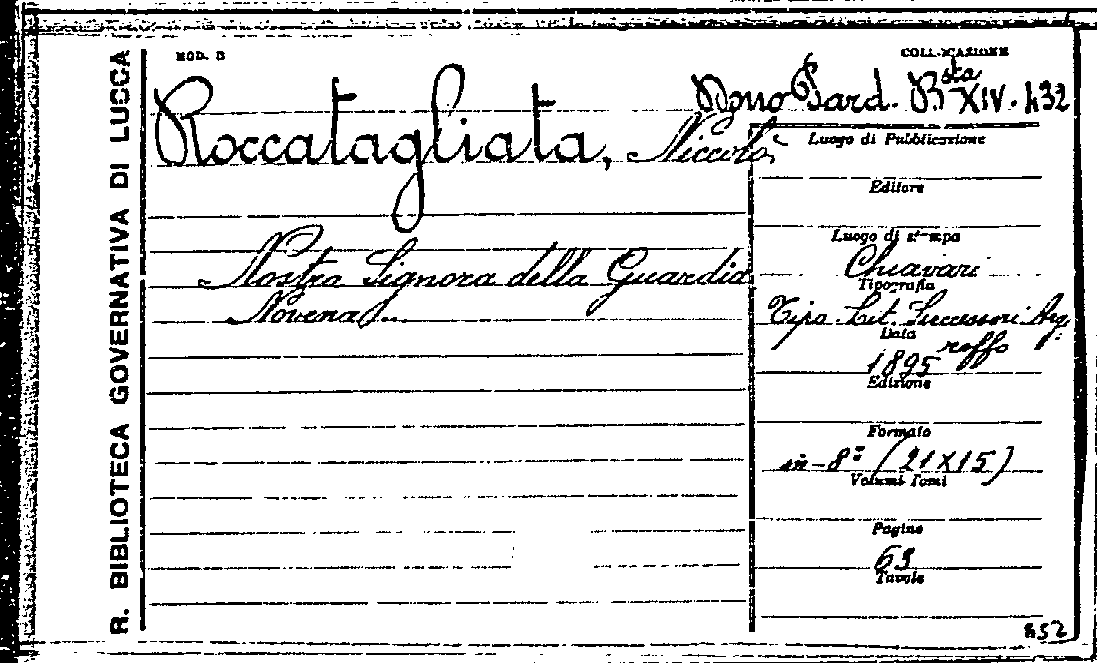 R. BIBLIOTECA GOVERNATIVA DI LUCCA
MOD. B
COLLOCAZIONE
Dono Sard. Bsta XIV. 432
Roccatagliata, Niccolò
Luogo di Pubblicazione
Editore
Luogo di stampa
Nostra Signora della Guardia
Chiavari
Tipografia
Novena...
Tipo. Lit. Successori Arg.
Data
roffo
1895
Edizione
Formato
in-8º (21X15)
Volumi Tomi
Pagine
63
Tavole